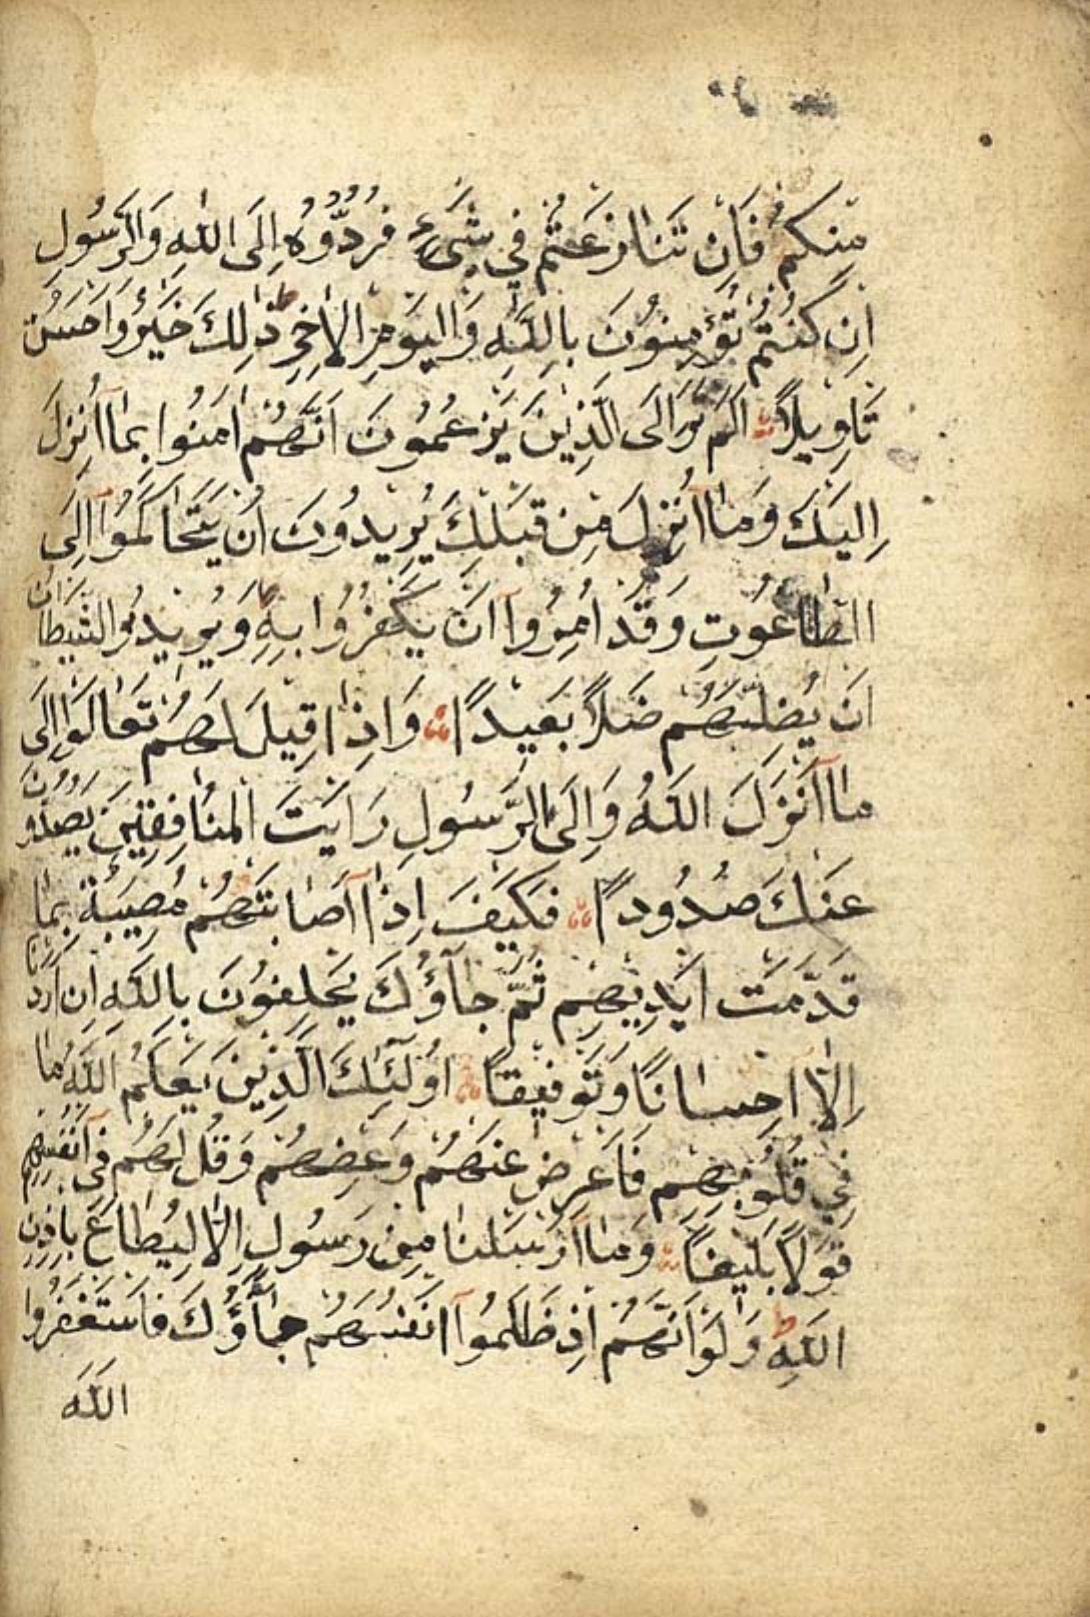 مِنْكُمْ فَاِنْ تَنَازَعْتُمْ فِي شَيْءٍ فَرُدُّوهُ اِلَى اللّٰهِ وَالرَّسُولِ
اِنْ كُنْتُمْ تُؤْمِنُونَ بِاللّٰهِ وَالْيَوْمِ الْاٰخِرِ ط ذٰلِكَ خَيْرٌ وَاَحْسَنُ
تَاْوِيلًا اَلَمْ تَرَ اِلَى الَّذِينَ يَزْعُمُونَ اَنَّهُمْ اٰمَنُوا بِمَٓا اُنْزِلَ
اِلَيْكَ وَمَٓا اُنْزِلَ مِنْ قَبْلِكَ يُرِيدُونَ اَنْ يَتَحَاكَمُٓوا اِلَى
الطَّاغُوتِ وَقَدْ اُمِرُٓوا اَنْ يَكْفُرُوا بِهِ ط وَيُرِيدُ الشَّيْطَانُ
اَنْ يُضِلَّهُمْ ضَلَالًا بَعِيدًا وَاِذَا قِيلَ لَهُمْ تَعَالَوْا اِلٰى
مَٓا اَنْزَلَ اللّٰهُ وَاِلَى الرَّسُولِ رَاَيْتَ الْمُنَافِقِينَ يَصُدُّونَ
عَنْكَ صُدُودًا فَكَيْفَ اِذَٓا اَصَابَتْهُمْ مُصِيبَةٌ بِمَا
قَدَّمَتْ اَيْدِيهِمْ ثُمَّ جَٓاؤُكَ يَحْلِفُونَ بِاللّٰهِ اِنْ اَرَدْنَا
اِلَّٓا اِحْسَانًا وَتَوْفِيقًا اُولٰٓئِكَ الَّذِينَ يَعْلَمُ اللّٰهُ مَا
فِي قُلُوبِهِمْ فَاَعْرِضْ عَنْهُمْ وَعِظْهُمْ وَقُلْ لَهُمْ فِٓي اَنْفُسِهِمْ
قَوْلًا بَلِيغًا وَمَٓا اَرْسَلْنَا مِنْ رَسُولٍ اِلَّا لِيُطَاعَ بِاِذْنِ
اللّٰهِ ط وَلَوْ اَنَّهُمْ اِذْ ظَلَمُٓوا اَنْفُسَهُمْ جَٓاؤُكَ فَاسْتَغْفَرُوا
اللّٰهَ